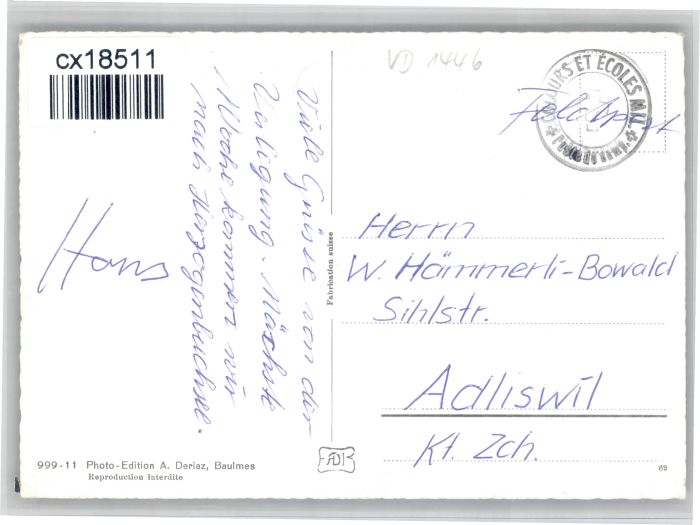 cx18511
VD 1446
COURS ET ÉCOLES MIL.
Poste de camp.
Feldpost
Viele Grüsse von der
Verlegung. Nächste
Woche kommen wir
nach Herzogenbuchsee.
Hans
Fabrication suisse
Herrn
W. Hämmerli-Bowald
Sihlstr.
Adliswil
Kt. Zch.
999-11 Photo-Edition A. Deriaz, Baulmes
Reproduction interdite
ADB
62